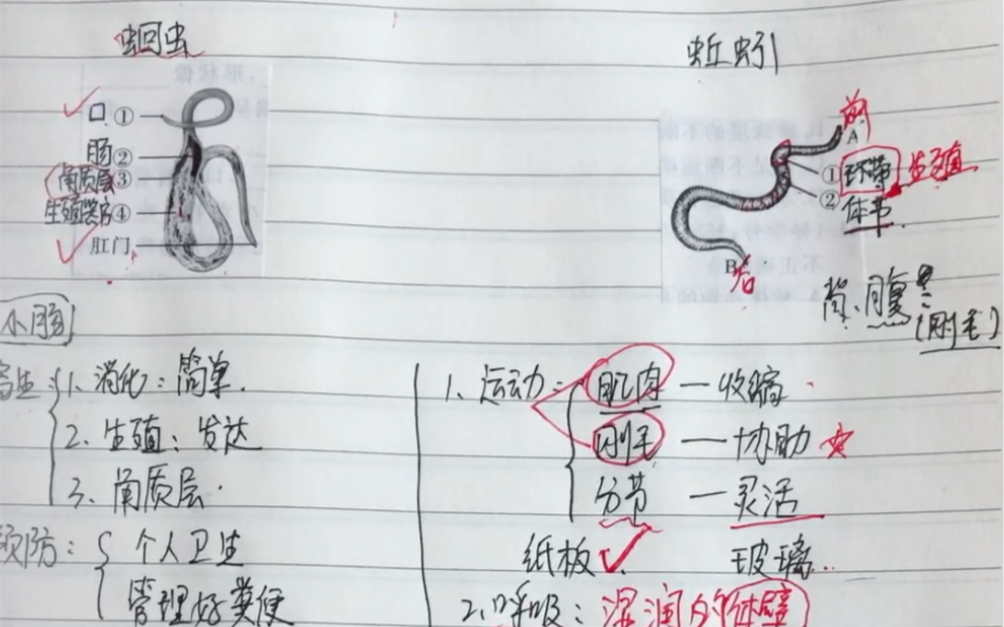 蛔虫
口①
肠②
角质层③
生殖器官④
肛门
小肠
寄生:
1. 消化:简单.
2. 生殖:发达
3. 角质层.
预防:
个人卫生
管理好粪便
蚯蚓
前
A
①环带 生殖
②体节
B 后
背、腹:
(刚毛)
1、运动:
肌肉 — 收缩
刚毛 — 协助 ☆
分节 — 灵活
纸板 ✓ 玻璃..
2.呼吸:湿润的体壁